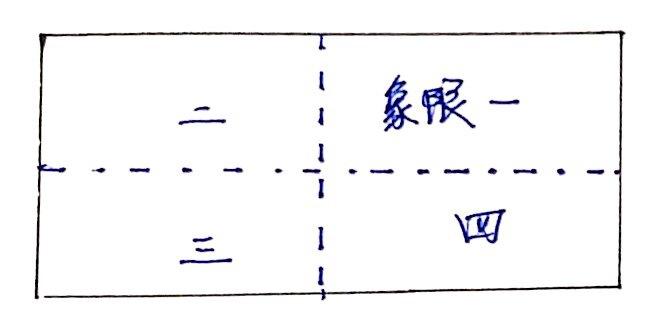 二 象限一
三 四